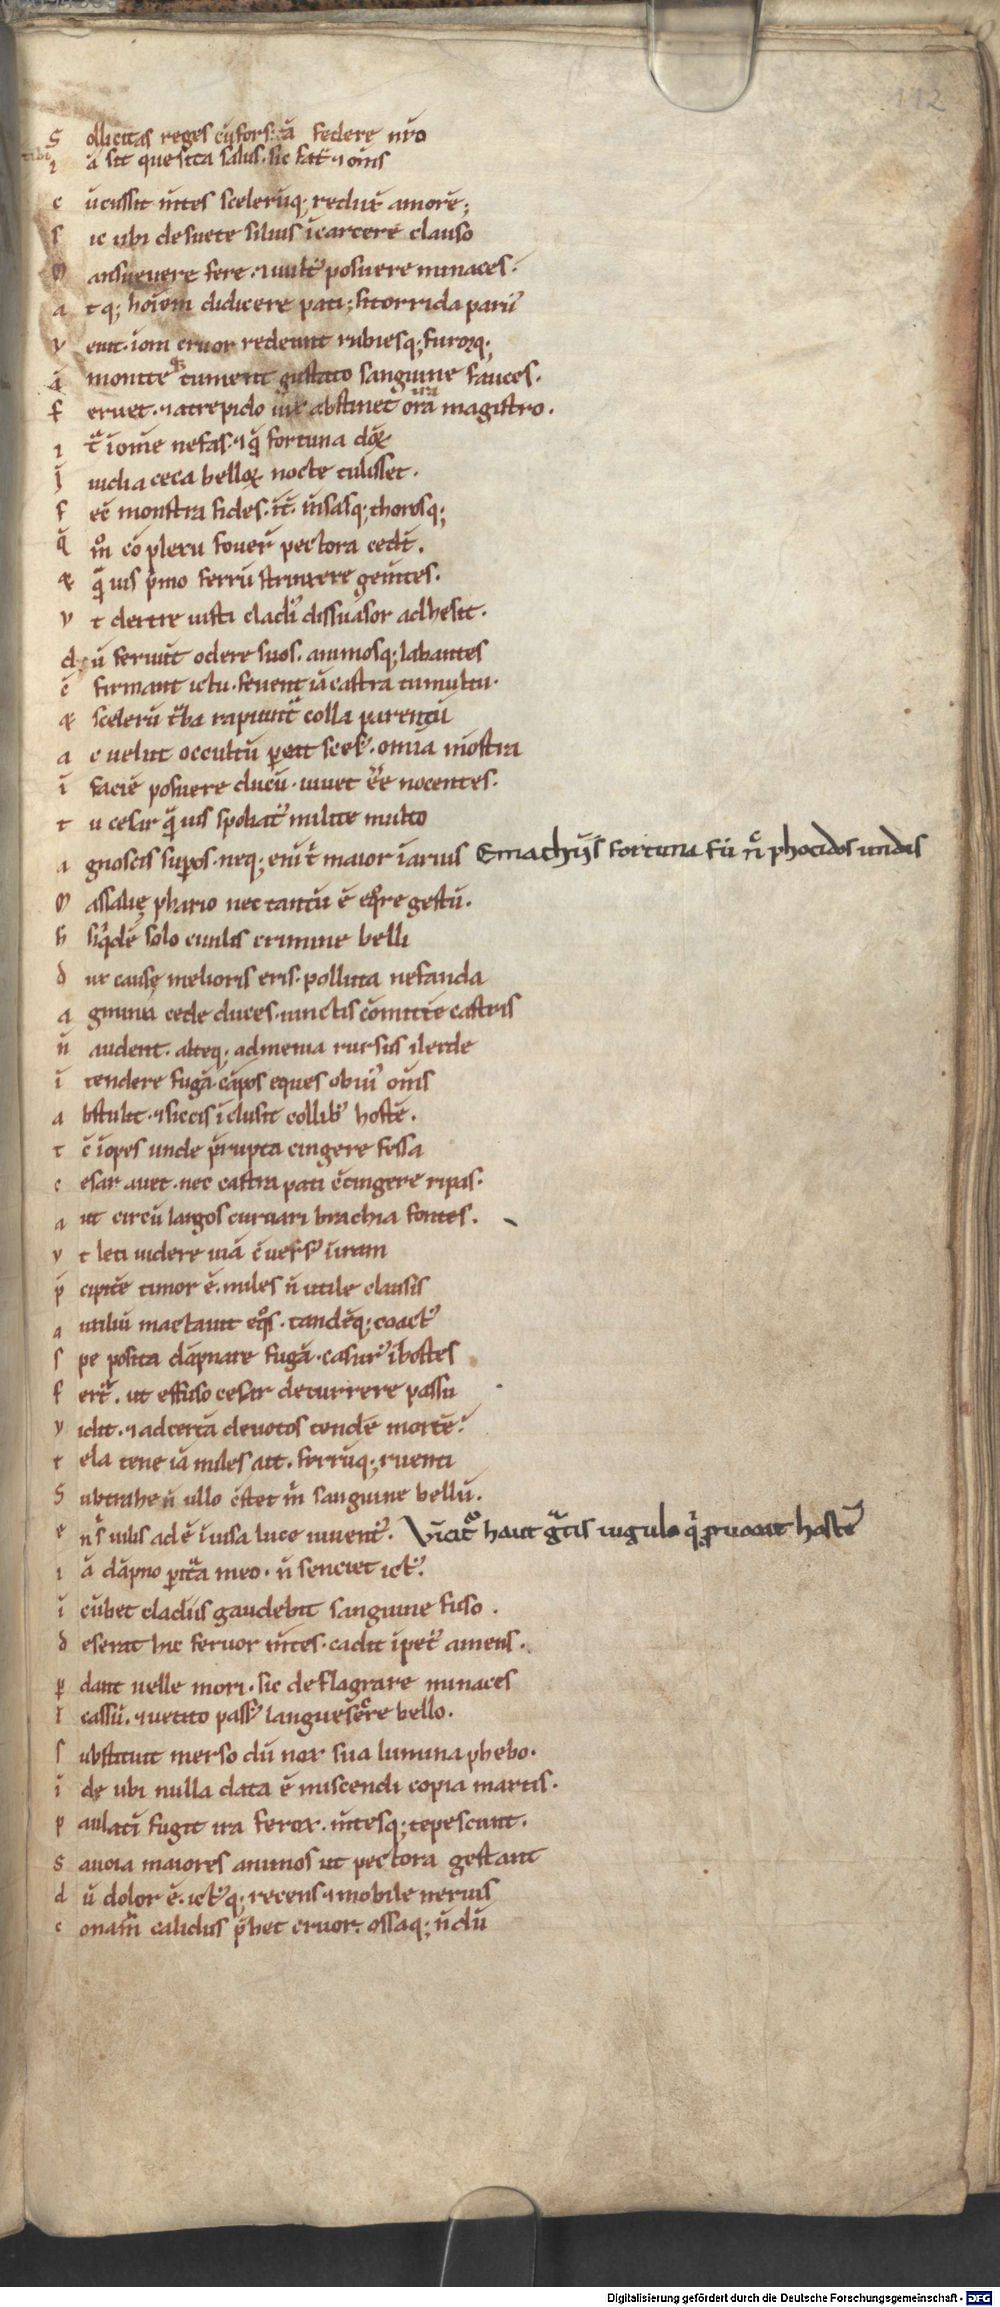 112
S ollicitas reges cū fors: tā federe nr̄o
tibi
i ā sit quesita salus. sic fat̄. ⁊ om̄s
c ūcussit m̄tes scelerūq; redux̄ amorē;
s ic ubi desuete siluis ī carcere clauso
M ansueuere fere. ⁊ uult᷒ posuere minaces.
a tq; hoīem didicere pati; si torrida paru᷒
v enit. ī om̄ cruor redeunt rabiesq; furorq;
ā monite tument gustato sanguine fauces.
f eruet. ⁊ a trepido uix abstinet ora magistro.
ı t̄ ī om̄e nefas. ⁊ q̄ fortuna deoꝝ
ī nuidia ceca belloꝝ nocte tulisset.
f ec̄ monstra fides. īt̄. m̄sasq; thorosq;
q̄ m̊ cōplexu fouer̄ pectora cedē.
⁊ q̄uis p̄mo ferrū strinxere gem̄tes.
v t dextre iusti gladi᷒ dissuasor adhesit.
d ū feriūt odere suos. animosq; labantes
c̄ firmant ictu. feruent iā castra tumultu.
⁊ scelerū t̄ba rapiunt̄ colla parentū
a c uelut occultū pereat scel᷒. omīa mōstra
ī faciē posuere ducū. iuuat ēē nocentes.
t u cesar q̄uis spoliat᷒ milite multo
a gnoscis supos. neq; enī t̄ maior ī aruis Emachijs fortuna fū n̄ phocidos undis
M assalię phario nec tantū ē eq̊re gestū.
h siq̄dē solo ciuilis crimine belli
d ux causę melioris eris. polluta nefanda
a gmina cede duces. iunctis cōmittē castris
n̄ audent. alteq; ad menia rursus ilerde
ī tendere fugā. cāpos eques obui᷒ om̄s
a bstulit. ⁊ siccis īclusit collib᷒ hostē.
t c̄ īopes unde p̄rupta cingere fossa
c esar auet. nec castra pati c̄tingere ripas.
a ut circū largos curuari brachia fontes.
v t leti uidere uiā c̄uers᷒ ī iram
p̄ cipitē timor ē. miles n̄ utile clausis
a uxiliū mactauit eq̊s. tandēq; coact᷒
s pe posita dāpnare fugā. casur᷒ ī hostes
f ert̄. ut effuso cesar decurrere passu
v idit. ⁊ ad certā deuotos tendē mortē.
t ela tene iā miles ait. ferrūq; ruenti
S ubtrahe n̄ ullo c̄stet m̄ sanguine bellū.
e n̄s uils adē īuisa luce iuuent᷒. Vicit᷒ haut gt̄is iugulo q̄ prouocat hostē
ı ā dāpno peritā meo. n̄ senciet ict᷒.
ī cūbet gladiis gaudebit sanguine fuso.
d eserat hic feruor m̄tes. cadat īpet᷒ amens.
p dant uelle mori. sic deflagrare minaces
ī cassū. ⁊ uetito pass᷒ languescere bello.
s ubstituit merso dū nox sua lumina phebo.
ī de ubi nulla data ē miscendi copia martis.
p aulatī fugit ira ferox. m̄tesq; tepescunt.
S aucia maiores animos ut pectora gestant
d ū dolor ē. ict᷒q; recens ⁊ mobile neruis
c onam̄ calidus p̄bet cruor. ossaq; n̄ dū
Digitalisierung gefördert durch die Deutsche Forschungsgemeinschaft - DFG